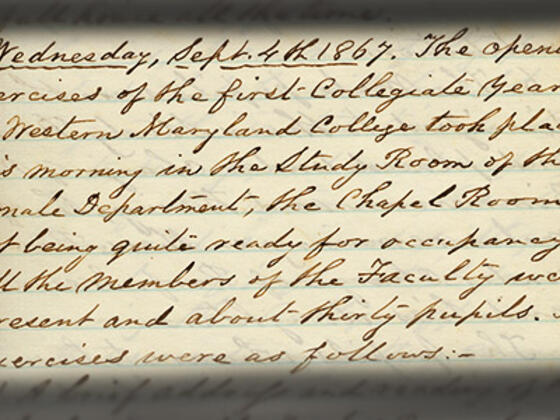 Wednesday, Sept. 4th 1867. The openi
ercises of the first Collegiate Year
Western Maryland College took plac
s morning in the Study Room of th
male Department, the Chapel Room
t being quite ready for occupancy
ll the members of the Faculty we
resent and about thirty pupils.
xercises were as follows:-
A brief address and reading of